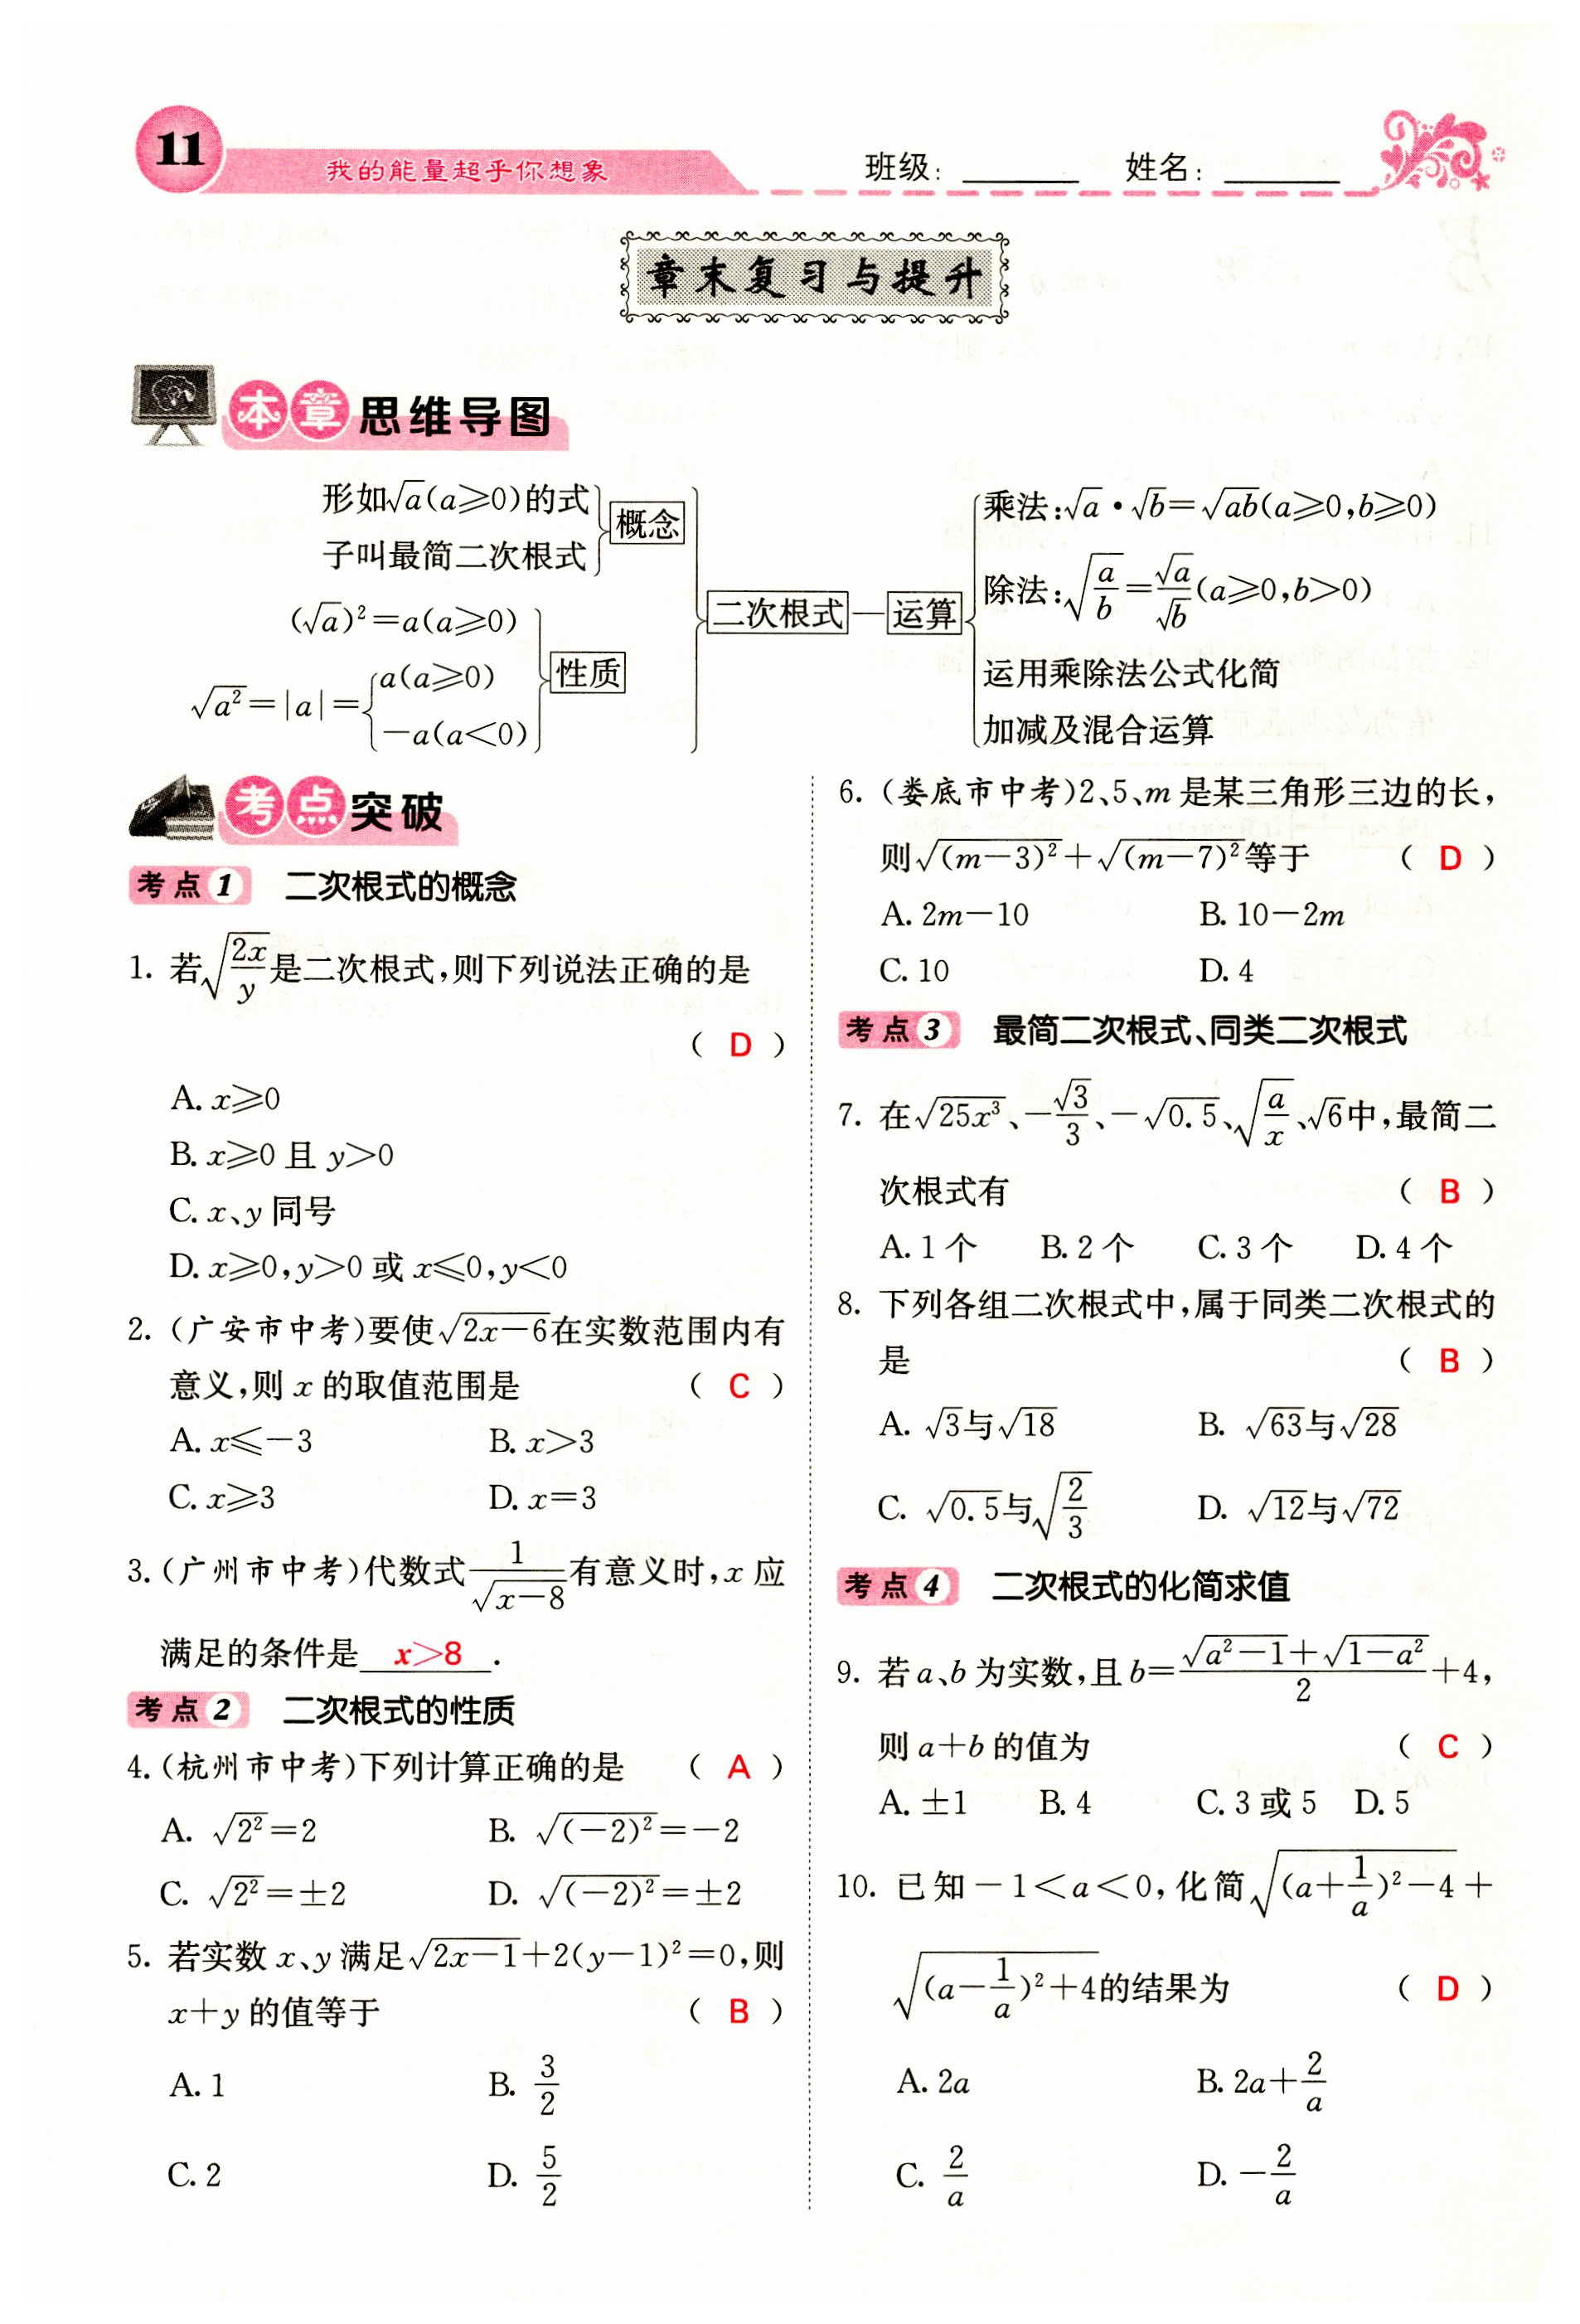 11
我的能量超乎你想象
班级：______ 姓名：______
章末复习与提升
本章思维导图
形如√a(a≥0)的式
子叫最简二次根式
概念
(√a)²=a(a≥0)
√a²=|a|={a(a≥0)
-a(a<0)
性质
二次根式—运算
乘法:√a·√b=√ab(a≥0,b≥0)
除法:√(a/b)=√a/√b(a≥0,b>0)
运用乘除法公式化简
加减及混合运算
考点突破
考点1 二次根式的概念
1. 若√(2x/y)是二次根式,则下列说法正确的是
( D )
A. x≥0
B. x≥0且y>0
C. x、y同号
D. x≥0,y>0或x≤0,y<0
2. (广安市中考)要使√(2x-6)在实数范围内有
意义,则x的取值范围是 ( C )
A. x≤-3 B. x>3
C. x≥3 D. x=3
3. (广州市中考)代数式1/√(x-8)有意义时,x应
满足的条件是 x>8 .
考点2 二次根式的性质
4. (杭州市中考)下列计算正确的是 ( A )
A. √2²=2 B. √(-2)²=-2
C. √2²=±2 D. √(-2)²=±2
5. 若实数x、y满足√(2x-1)+2(y-1)²=0,则
x+y的值等于 ( B )
A. 1 B. 3/2
C. 2 D. 5/2
6. (娄底市中考)2、5、m是某三角形三边的长,
则√(m-3)²+√(m-7)²等于 ( D )
A. 2m-10 B. 10-2m
C. 10 D. 4
考点3 最简二次根式、同类二次根式
7. 在√25x³、-√3/3、-√0.5、√(a/x)、√6中,最简二
次根式有 ( B )
A. 1个 B. 2个 C. 3个 D. 4个
8. 下列各组二次根式中,属于同类二次根式的
是 ( B )
A. √3与√18 B. √63与√28
C. √0.5与√(2/3) D. √12与√72
考点4 二次根式的化简求值
9. 若a、b为实数,且b=(√(a²-1)+√(1-a²))/2+4,
则a+b的值为 ( C )
A. ±1 B. 4 C. 3或5 D. 5
10. 已知-1<a<0,化简√((a+1/a)²-4)+
√((a-1/a)²+4)的结果为 ( D )
A. 2a B. 2a+2/a
C. 2/a D. -2/a